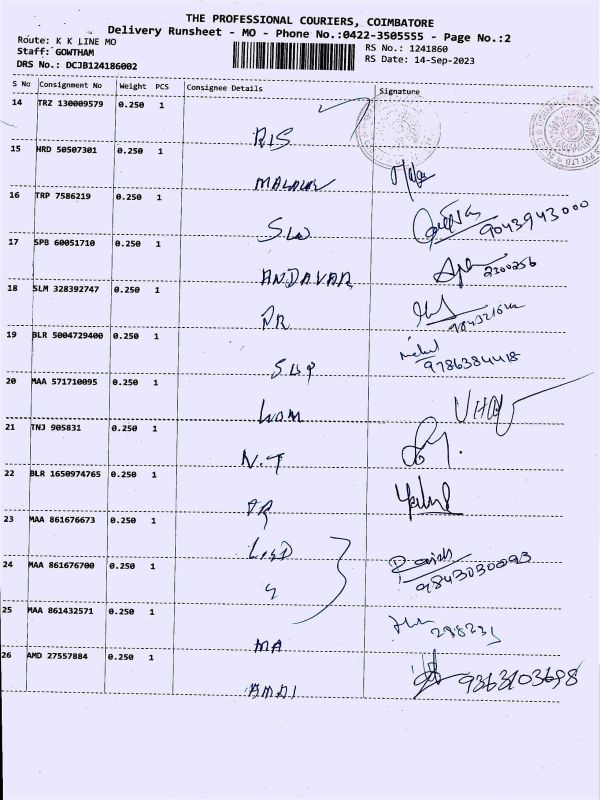 THE PROFESSIONAL COURIERS, COIMBATORE
Delivery Runsheet - MO - Phone No.:0422-3505555 - Page No.:2
Route: K K LINE MO
Staff: GOWTHAM
DRS No.: DCJB124186002
RS No.: 1241860
RS Date: 14-Sep-2023
S No Consignment No Weight PCS Consignee Details Signature
14 TRZ 130009579 0.250 1
RIS
15 HRD 50507301 0.250 1
16 TRP 7586219 0.250 1
9043943000
17 SPB 60051710 0.250 1
ANDAVAR
2300256
18 SLM 328392747 0.250 1
19 BLR 5004729400 0.250 1
9786384418
20 MAA 571710095 0.250 1
21 TNJ 905831 0.250 1
N.T
22 BLR 1650974765 0.250 1
23 MAA 861676673 0.250 1
24 MAA 861676700 0.250 1
9843030093
25 MAA 861432571 0.250 1
MA
26 AMD 27557884 0.250 1
9363103698